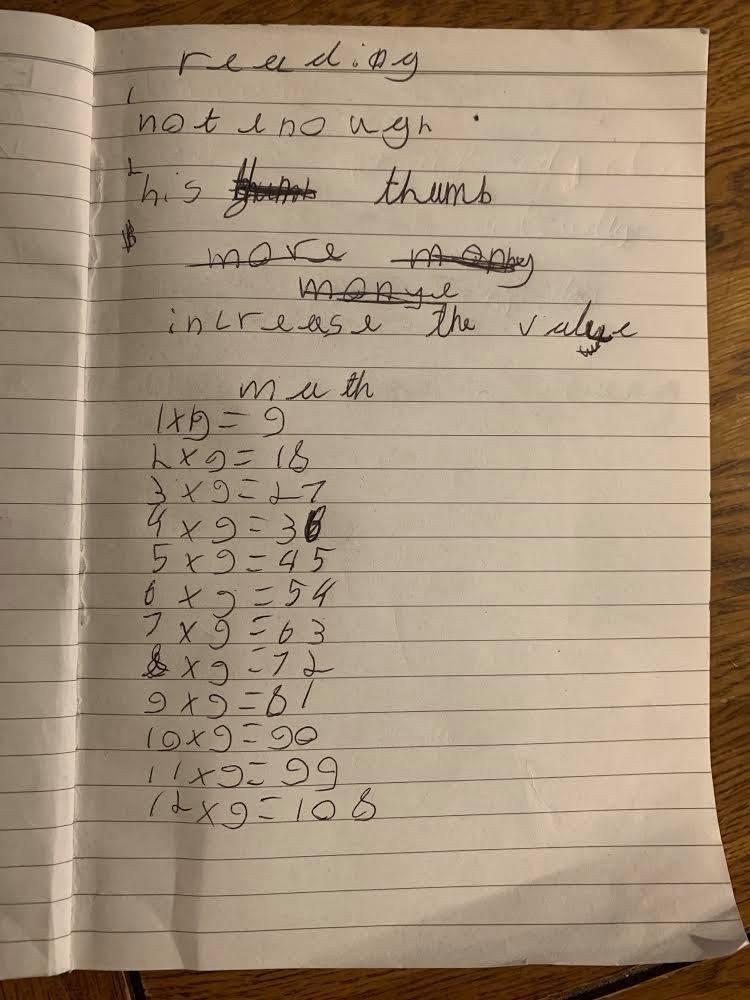 reading
1
not enough.
2
his thumb thumb
3
more money
monye
increase the value
math
1x9=9
2x9=18
3x9=27
4x9=36
5x9=45
6x9=54
7x9=63
8x9=72
9x9=81
10x9=90
11x9=99
12x9=108